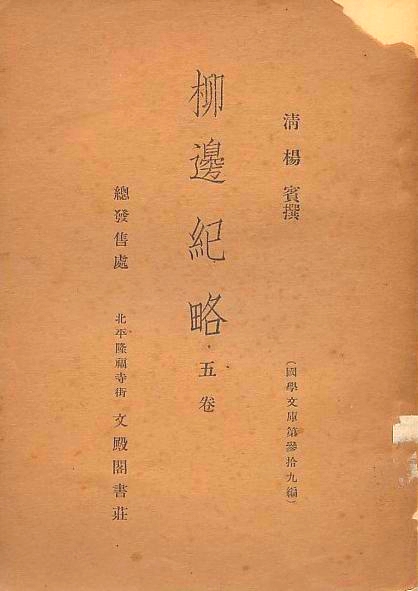 清楊賓撰
(國學文庫第參拾九編)
柳邊紀略五卷
總發售處
北平隆福寺街文殿閣書莊